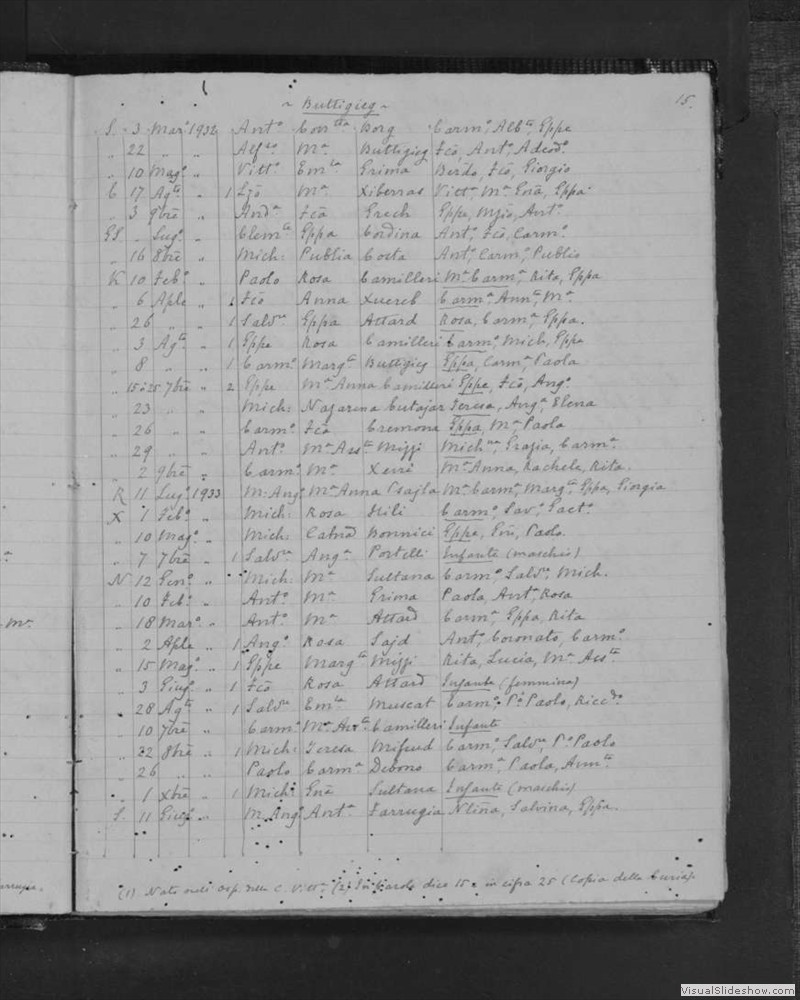 15.
~ Buttigieg ~
S. 3 Mar° 1932 Ant° Con.tta Borg Carm°, Alb.to, Eppe
„ 22 „ „ Alf.so Mª Buttigieg Fcõ, Ant°, Adeod.°
„ 10 Mag° „ Vitt° Em.la Grima Berdo, Fcõ, Giorgio
C 17 Ag.to „ 1 Lzõ Mª Xiberras Vitt.ª Mª Gnã, Eppa
„ 3 9bre „ And.ª Fcã Grech Eppa, Ant.°
„ Lug° „ Clem.te Eppa Cordina Ant°, Fcõ, Carm°
„ 16 8bre „ Mich: Publia Costa Ant°, Carm°, Publio
K 10 Feb° „ Paolo Rosa Camilleri Mª Carmª, Rita, Eppa
„ 6 Aple „ 1 Fcõ Anna Xuereb Carmª, Ann.ta, Mª
„ 26 „ „ 1 Salv.re Eppa Attard Rosa, Carmª, Eppa.
„ 3 Ag.to „ 1 Eppe Rosa Camilleri Carm°, Mich, Eppe
„ 8 „ 1 Carm° Marg.ta Buttigieg Eppa, Carmª, Paola
„ 15 o 25 7bre „ 2 Eppe Mª Anna Camilleri Eppe, Fcõ, Ang°
„ 23 „ „ Mich: Nazarena Cutajar Teresa, Angª, Elena
„ 26 „ „ Carm° Fcã Cremona Eppa, Mª Paola
„ 29 „ „ Ant° Mª Ass.ta Mizzi Mich.na, Grazia, Carmª
„ 2 9bre „ Carm° Mª Xerri Mª Anna, Rachele, Rita.
R 11 Lug° 1933 M. Ang° Mª Anna Psajla Mª Carmª, Marg.ta, Eppa, Giorgia
X 1 Feb° „ Mich: Rosa Hili Carm°, Sav°, Gaet°
„ 10 Mag° „ Mich: Catnã Bonnici Eppe, Gnã, Paolo.
„ 7 7bre „ 1 Salv.re Angª Portelli Infante (maschio)
N 12 Gen° „ Mich: Mª Sultana Carm°, Salv.re, Mich.
„ 10 Feb° „ Ant° Mª Grima Paola, Antª, Rosa
„ 18 Mar° „ Ant° Mª Attard Carmª, Eppa, Rita
„ 2 Aple „ 1 Ang° Rosa Sajd Ant°, Coronato, Carm°
„ 15 Mag° „ 1 Eppe Marg.ta Mizzi Rita, Lucia, Mª Ass.ta
„ 3 Giug° „ 1 Fcõ Rosa Attard Infante (femmina)
„ 28 Ag.to „ 1 Salv.re Em.la Muscat Carm°, P° Paolo, Ricc.do
„ 10 7bre Carm° Mª Ass.ta Camilleri Infante
„ 22 8bre „ 1 Mich: Teresa Mifsud Carm°, Salv.re, P° Paolo
„ 26 „ „ Paolo Carmª Debono Carmª, Paola, Ann.ta
„ 1 Xbre „ 1 Mich: Gnã Sultana Infante (maschio)
S. 11 Giug° „ M. Ang° Antª Farrugia Ntlina, Salvina, Eppa.
(1) Nato osp. nella C. Vitt.ª (2) In Parole dice 15 e in cifra 25 (Copia della Curia)
VisualSlideshow.com